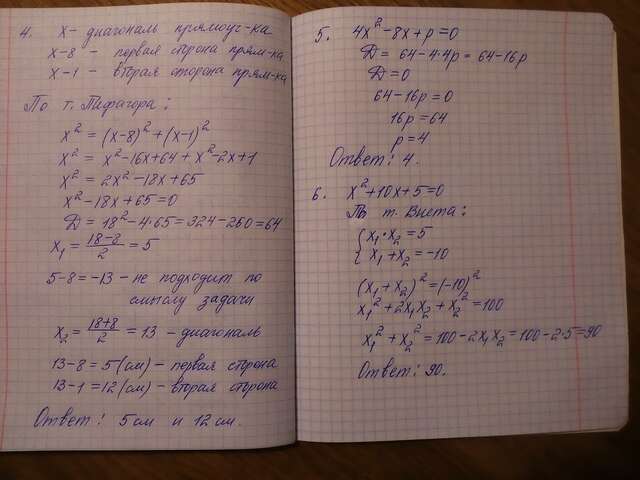 4. x - диагональ прямоуг-ка
x-8 - первая сторона прям-ка
x-1 - вторая сторона прям-ка
По т. Пифагора:
x² = (x-8)² + (x-1)²
x² = x² - 16x + 64 + x² - 2x + 1
x² = 2x² - 18x + 65
x² - 18x + 65 = 0
D = 18² - 4·65 = 324 - 260 = 64
x₁ = (18-8)/2 = 5
5-8 = -13 - не подходит по
смыслу задачи
x₂ = (18+8)/2 = 13 - диагональ
13-8 = 5 (см) - первая сторона
13-1 = 12 (см) - вторая сторона
Ответ: 5 см и 12 см.
5. 4x² - 8x + p = 0
D = 64 - 4·4p = 64 - 16p
D = 0
64 - 16p = 0
16p = 64
p = 4
Ответ: 4.
6. x² + 10x + 5 = 0
По т. Виета:
{ x₁·x₂ = 5
x₁ + x₂ = -10
(x₁ + x₂)² = (-10)²
x₁² + 2x₁x₂ + x₂² = 100
x₁² + x₂² = 100 - 2x₁x₂ = 100 - 2·5 = 90
Ответ: 90.